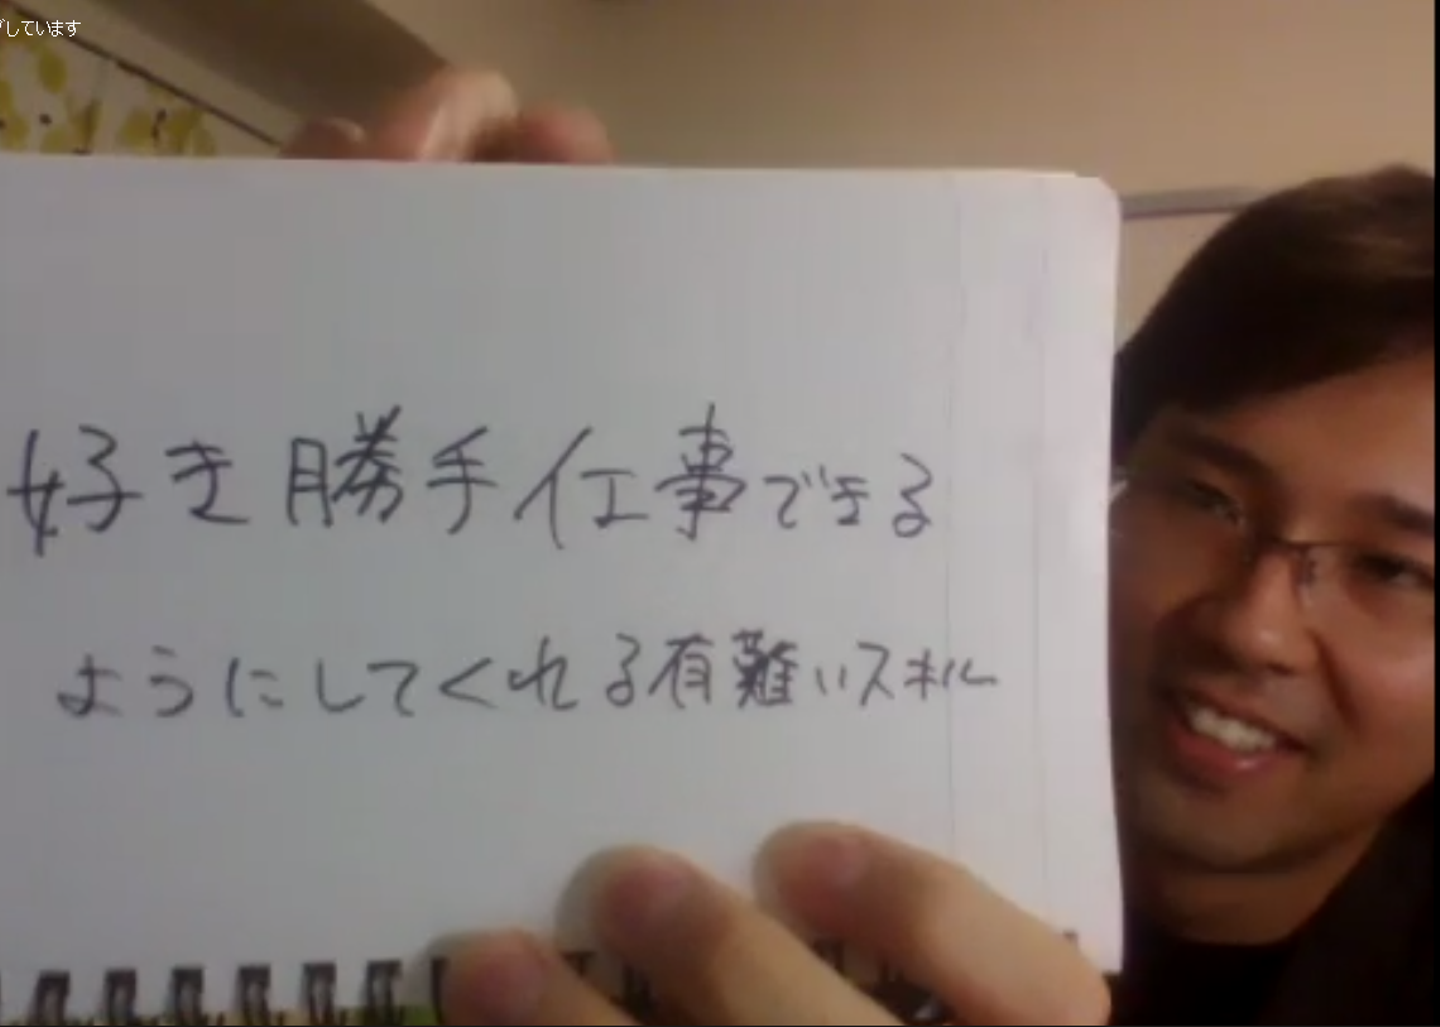 グしています
好き勝手仕事できる
ようにしてくれる有難いスキル